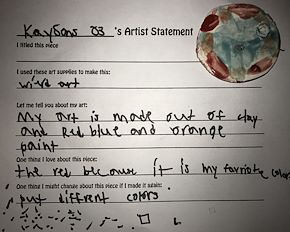 Kaysons 03 's Artist Statement
I titled this piece
I used these art supplies to make this:
wierd art
Let me tell you about my art:
My art is made out of clay
and Red blue and orange
paint
One thing I love about this piece:
the red because it is my favriote color
One thing I might change about this piece if I made it again:
put different colors